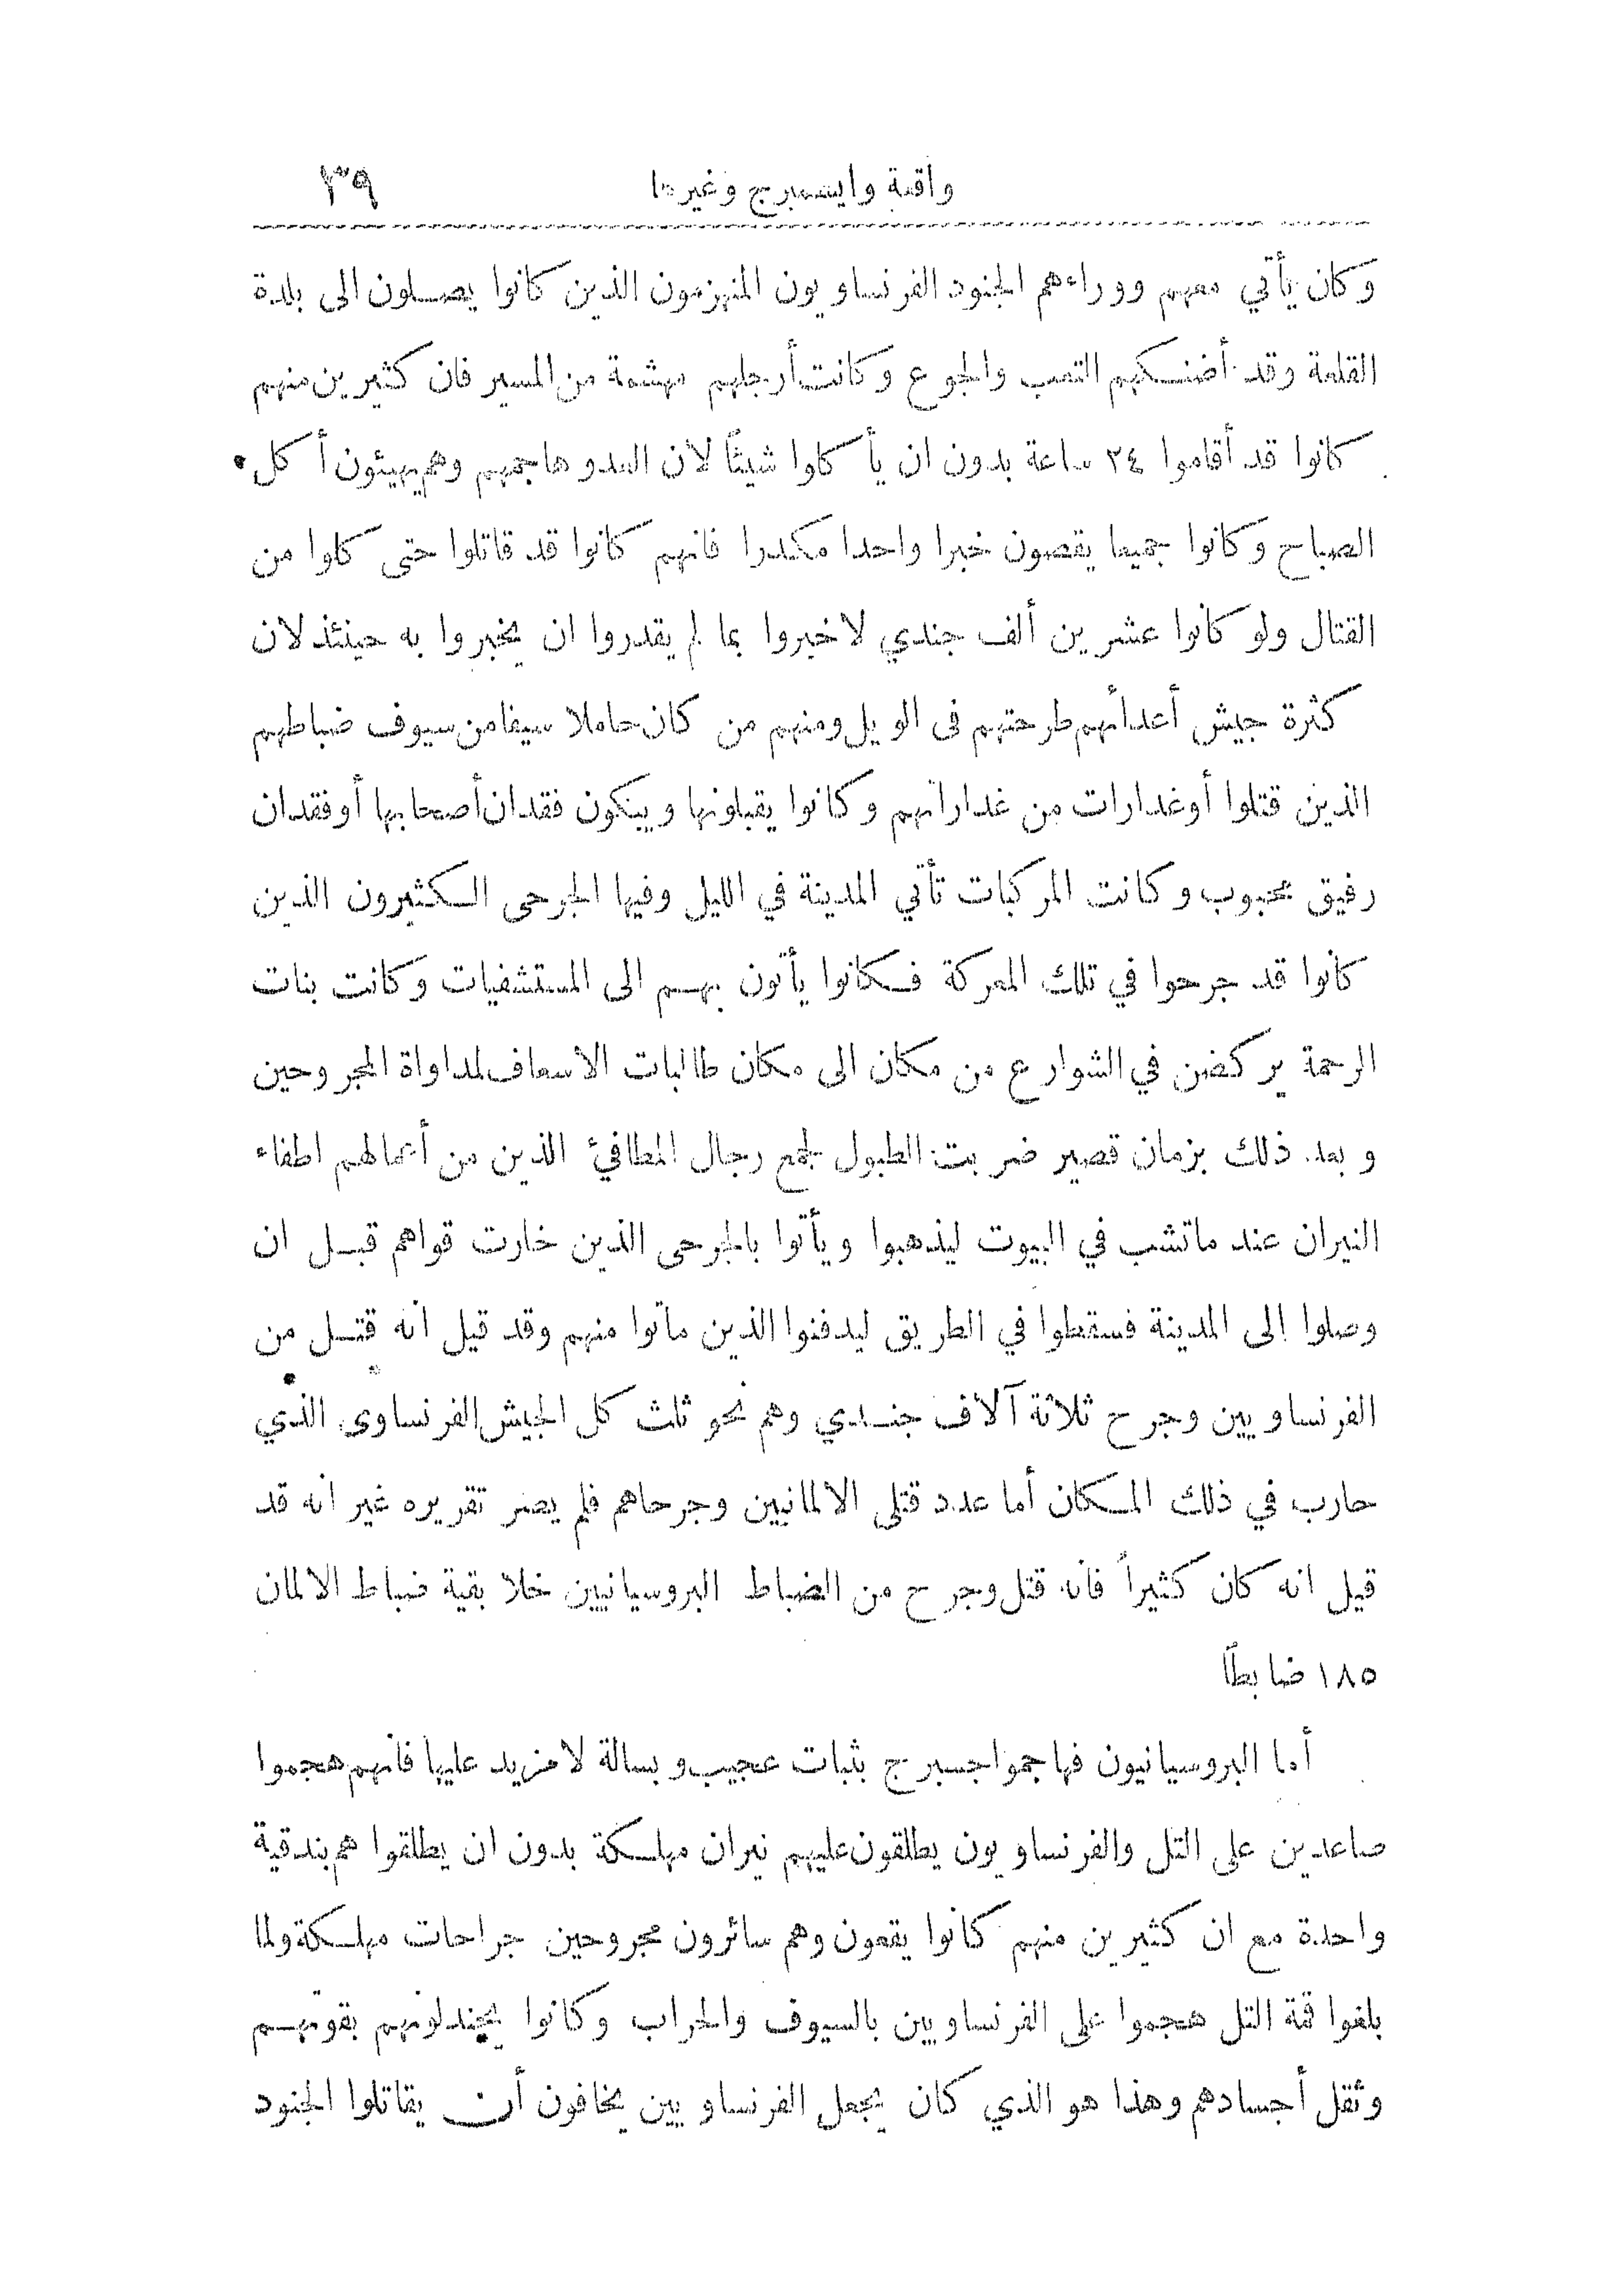 واقعة وايسمبرج وغيرها ٣٩
وكان يأتي معهم ووراءهم الجنود الفرنساويون المنهزمون الذين كانوا يصلون الى بلدة
القلعة وقد أضنكهم التعب والجوع وكانت أرجلهم مهشمة من المسير فان كثيرين منهم
كانوا قد أقاموا ٢٤ ساعة بدون ان يأكلوا شيئًا لان العدو هاجمهم وهم يهيئون أكل
الصباح وكانوا جميعا يقصون خبرا واحدا مكدرا فانهم كانوا قد قاتلوا حتى كلوا من
القتال ولو كانوا عشرين ألف جندي لاخبروا بما لم يقدروا ان يخبروا به حينئذ لان
كثرة جيش أعدائهم طرحتهم فى الويل ومنهم من كان حاملا سيفا من سيوف ضباطهم
الذين قتلوا أو غدارات من غداراتهم وكانوا يقبلونها ويبكون فقدان أصحابها أو فقدان
رفيق محبوب وكانت المركبات تأتي المدينة في الليل وفيها الجرحى الكثيرون الذين
كانوا قد جرحوا في تلك المعركة فكانوا يأتون بهم الى المستشفيات وكانت بنات
الرحمة يركضن في الشوارع من مكان الى مكان طالبات الاسعاف لمداواة المجروحين
وبعد ذلك بزمان قصير ضربت الطبول لجمع رجال المطافئ الذين من أعمالهم اطفاء
النيران عند ماتشب في البيوت ليذهبوا ويأتوا بالجرحى الذين خارت قواهم قبل ان
وصلوا الى المدينة فسقطوا في الطريق ليدفنوا الذين ماتوا منهم وقد قيل انه قتل من
الفرنساويين وجرح ثلاثة آلاف جندي وهم نحو ثلث كل الجيش الفرنساوى الذي
حارب في ذلك المكان أما عدد قتلى الالمانيين وجرحاهم فلم يصر تقريره غير انه قد
قيل انه كان كثيراً فانه قتل وجرح من الضباط البروسيانيين خلا بقية ضباط الالمان
١٨٥ ضابطًا
أما البروسيانيون فهاجموا جسبرج بثبات عجيب وبسالة لا مزيد عليها فانهم هجموا
صاعدين على التل والفرنساويون يطلقون عليهم نيران مهلكة بدون ان يطلقوا هم بندقية
واحدة مع ان كثيرين منهم كانوا يقعون وهم سائرون مجروحين جراحات مهلكة ولما
بلغوا قمة التل هجموا على الفرنساويين بالسيوف والحراب وكانوا يجندلونهم بقوتهم
وثقل أجسادهم وهذا هو الذي كان يجعل الفرنساويين يخافون أن يقاتلوا الجنود